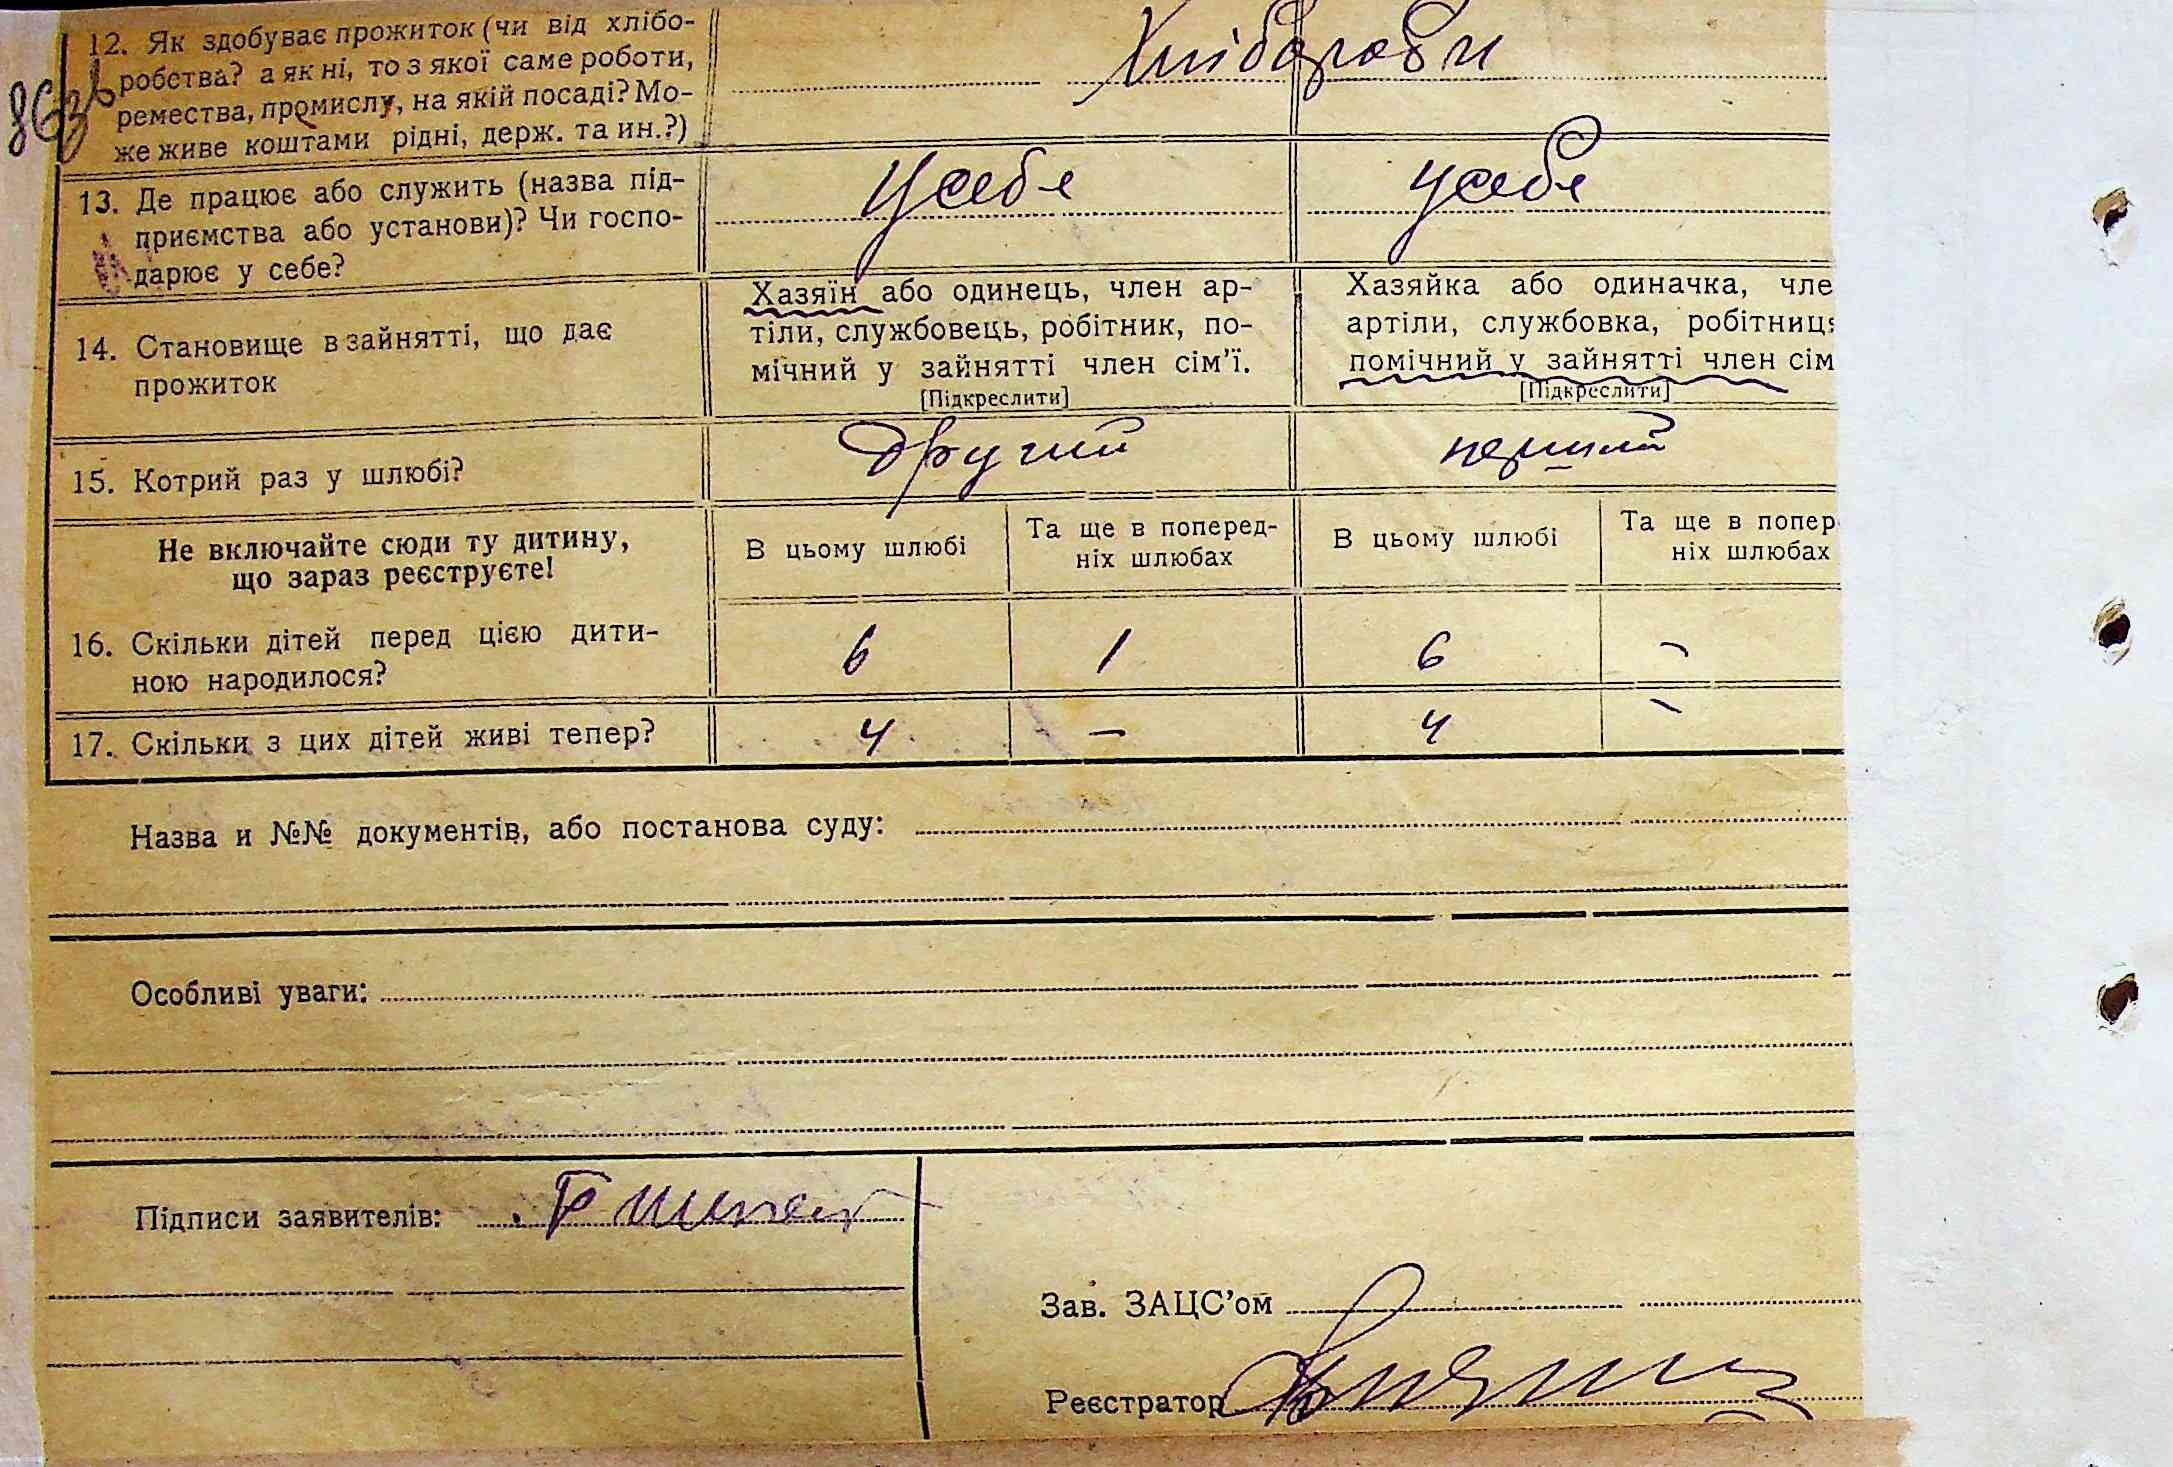 12. Як здобуває прожиток (чи від хлібо-
робства? а як ні, то з якої саме роботи,
ремества, промислу, на якій посаді? Мо-
же живе коштами рідні, держ. та ин.?)
Хлібороби
13. Де працює або служить (назва під-
приємства або установи)? Чи госпо-
дарює у себе?
У себе
у себе
14. Становище в зайнятті, що дає
прожиток
Хазяїн або одинець, член ар-
тіли, службовець, робітник, по-
мічний у зайнятті член сім'ї.
[Підкреслити]
Хазяйка або одиначка, чле
артіли, службовка, робітниця
помічний у зайнятті член сім
[Підкреслити]
15. Котрий раз у шлюбі?
другий
перший
Не включайте сюди ту дитину,
що зараз реєструєте!
В цьому шлюбі
Та ще в поперед-
ніх шлюбах
В цьому шлюбі
Та ще в попер
ніх шлюбах
16. Скільки дітей перед цією дити-
ною народилося?
6
1
6
-
17. Скільки з цих дітей живі тепер?
4
-
4
-
Назва и №№ документів, або постанова суду:
Особливі уваги:
Підписи заявителів:
Зав. ЗАЦС'ом
Реєстратор